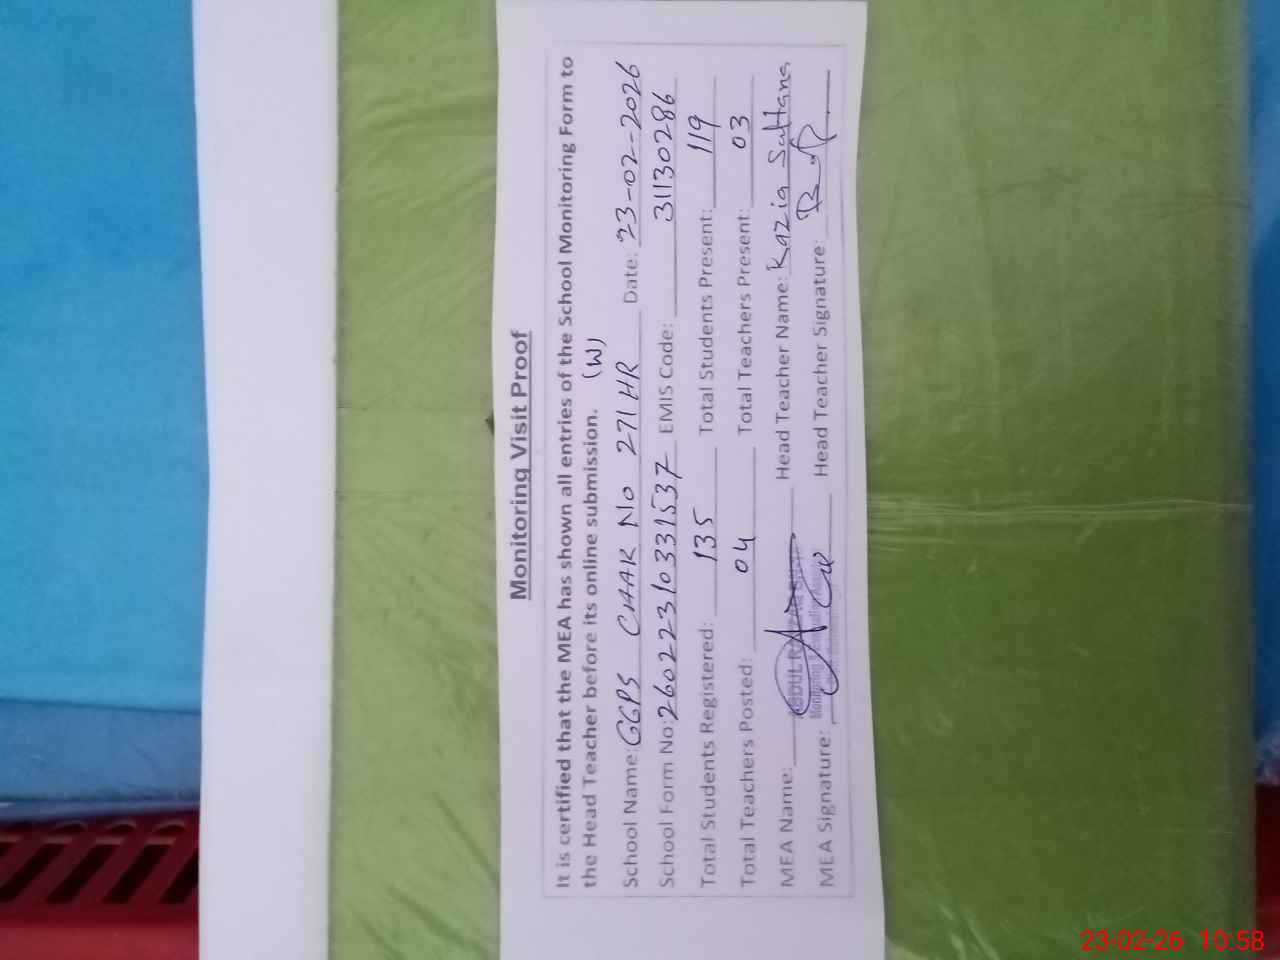 Monitoring Visit Proof
It is certified that the MEA has shown all entries of the School Monitoring Form to
the Head Teacher before its online submission. (W)
School Name: GGPS CHAAK No 271 HR Date: 23-02-2026
School Form No: 26022310331537 EMIS Code: 31130286
Total Students Registered: 135 Total Students Present: 119
Total Teachers Posted: 04 Total Teachers Present: 03
MEA Name: ABDUL Head Teacher Name: Razia Sultana
Monitoring
MEA Signature: Head Teacher Signature:
23-02-26 10:58